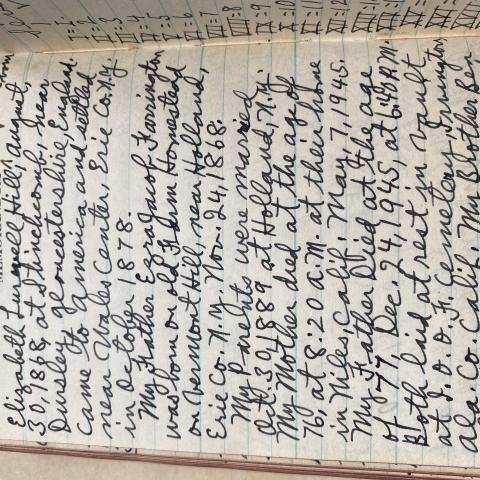 Elizabeth Hill, August,
30, 1868, at Stinchcomb, near
Dursley, Gloucestershire, England.
Came to America and settled
near Wales Center, Erie Co. N.Y.
in October 1878.
My Father Ezra Jacob Farrington
was born on old Farm Homestead
on Vermont Hill, near Holland,
Erie Co. N.Y. Nov. 24, 1868.
My Parents were married
Oct. 30, 1889 at Holland, N.Y.
My Mother died at the age of
76, at 8:20 A.M. at their home
in Niles, Calif; May 7, 1945.
My Father Died at the age
of 77, Dec. 24, 1945, at A.M.
Both laid at rest in Vault
at I.O.O.F. Cemetery Irvington,
Ala. Co. Calif. My Brother Ben
=2
=3
=4
=5
=6
VIII=8
IX=9
X=10
XI=11
XII=12